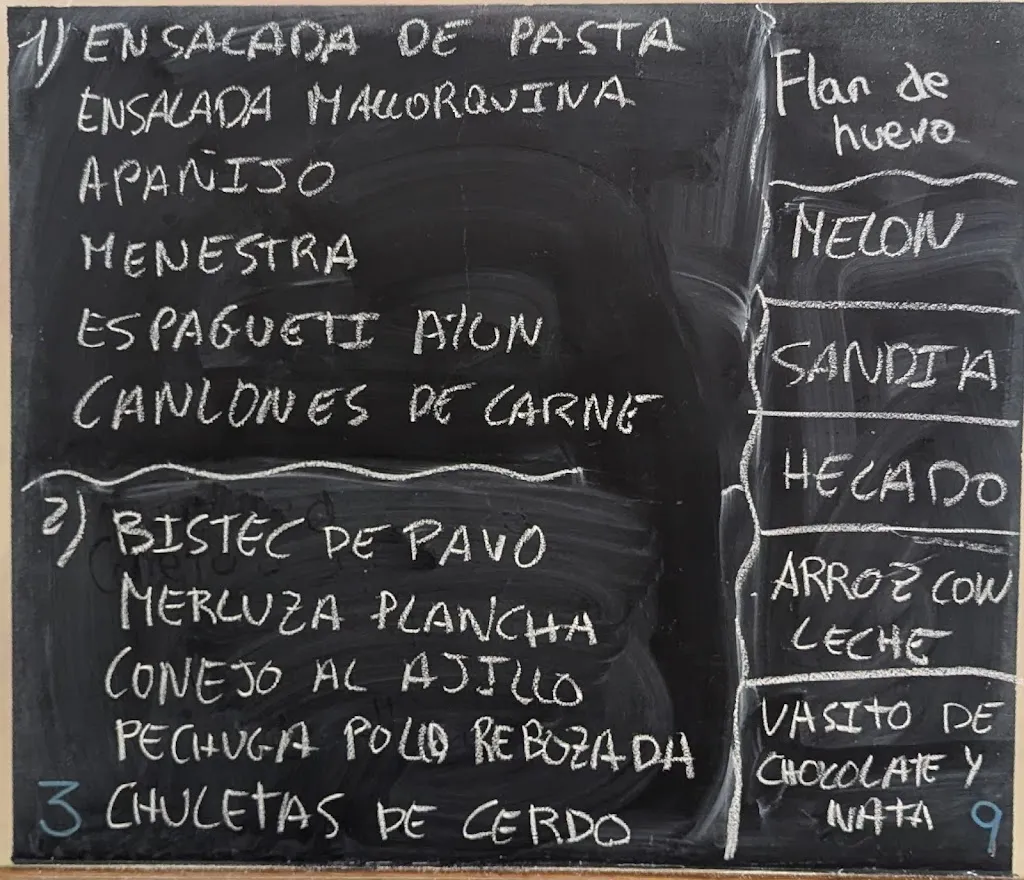 1) ENSALADA DE PASTA
ENSALADA MALLORQUINA
APAÑIJO
MENESTRA
ESPAGUETI ATUN
CANLONES DE CARNE
2) BISTEC DE PAVO
MERLUZA PLANCHA
CONEJO AL AJILLO
PECHUGA POLLO REBOZADA
3 CHULETAS DE CERDO
Flan de
huevo
MELON
SANDIA
HELADO
ARROZ CON
LECHE
VASITO DE
CHOCOLATE Y
NATA
9